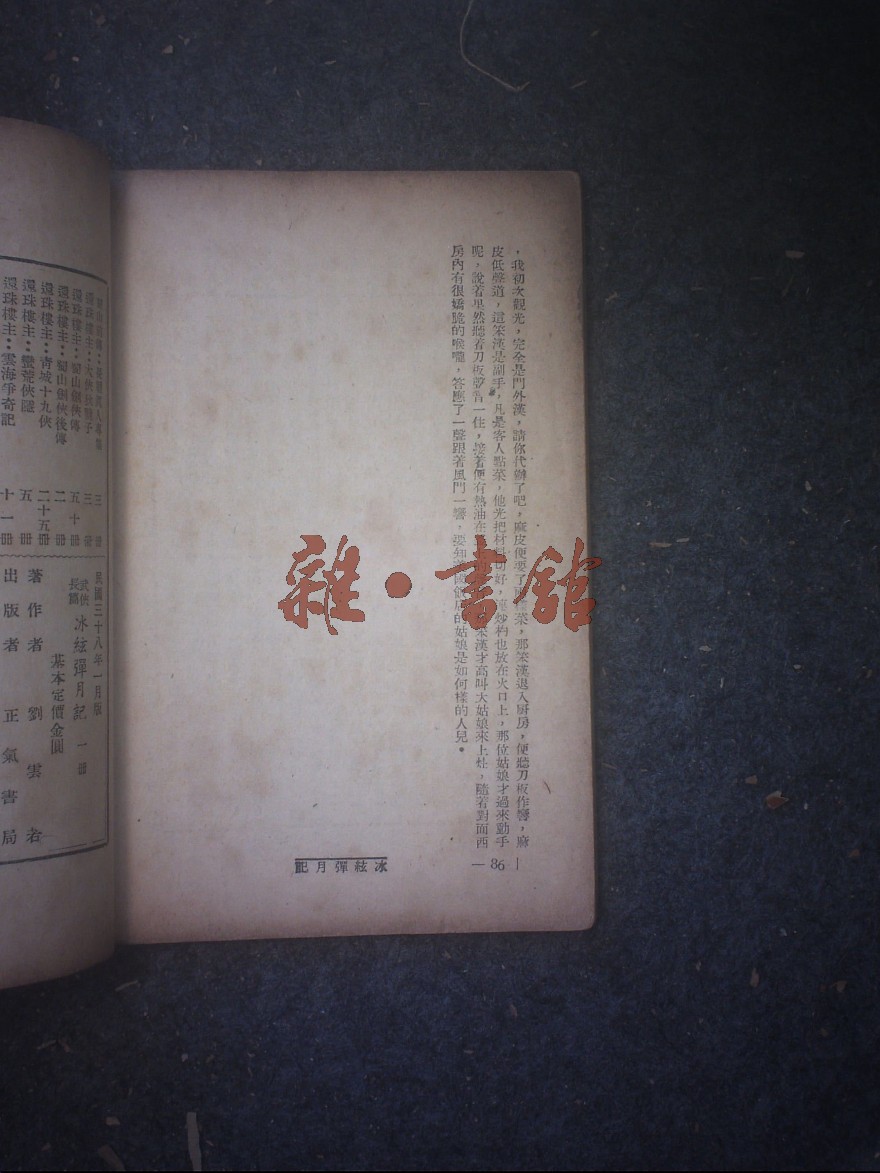 ，我初次觀光，完全是門外漢，請你代辦了吧，麻皮便要了菜，那笨漢退入厨房，便聽刀板作響，麻
皮低聲道，這笨漢是副手，凡是客人點菜，他光把材料切好，炒杓也放在火口上，那位姑娘才過來動手
呢，說着果然聽着刀板聲音一住，接着便有熱油在笨漢才高叫大姑娘來上灶，隨着對面西
房內有很嬌脆的喉嚨，答應了一聲跟著風門一響，要知姑娘是如何樣的人兒。
— 86 —
冰絃彈月記
雜·書館
還珠樓主：大俠狄龍子 三
還珠樓主：蜀山劍俠傳 五十冊
還珠樓主：蜀山劍俠後傳 二冊
還珠樓主：青城十九俠 二十五冊
還珠樓主：蠻荒俠隱 五冊
還珠樓主：雲海爭奇記 十一冊
民國三十八年一月版
武俠長篇 冰絃彈月記 一冊
基本定價金圓
著作者 劉雲若
出版者 正氣書局